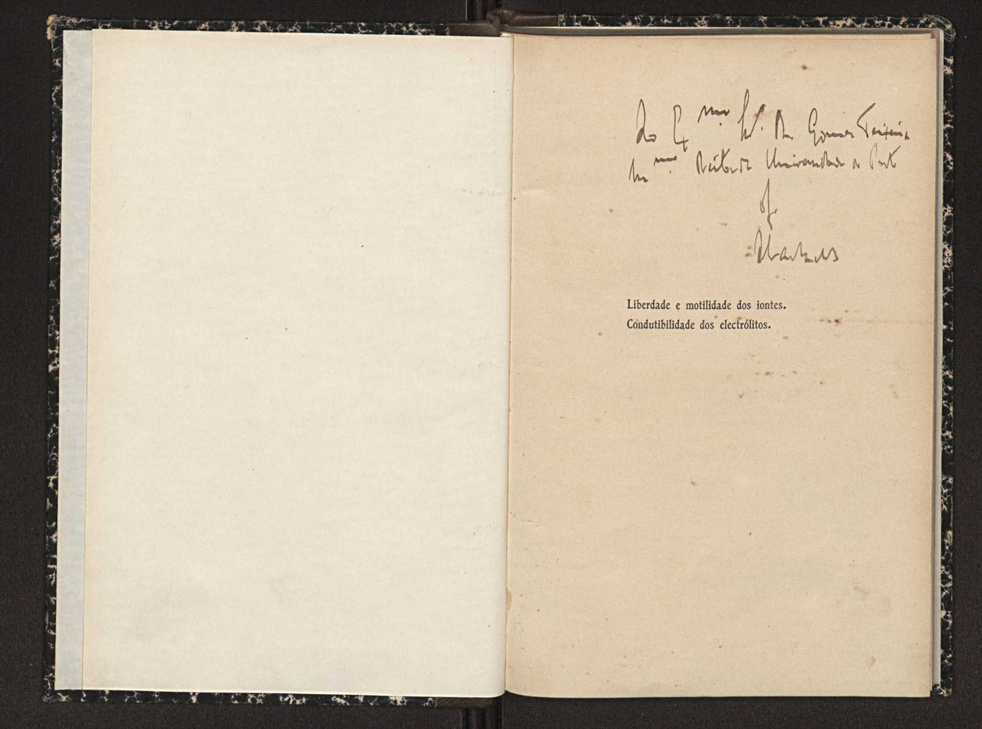 Ao Exmo Sr. Dr. Gomes Teixeira
Mmo. Reitor da Universidade do Porto
of.
Liberdade e motilidade dos iontes.
Condutibilidade dos electrólitos.